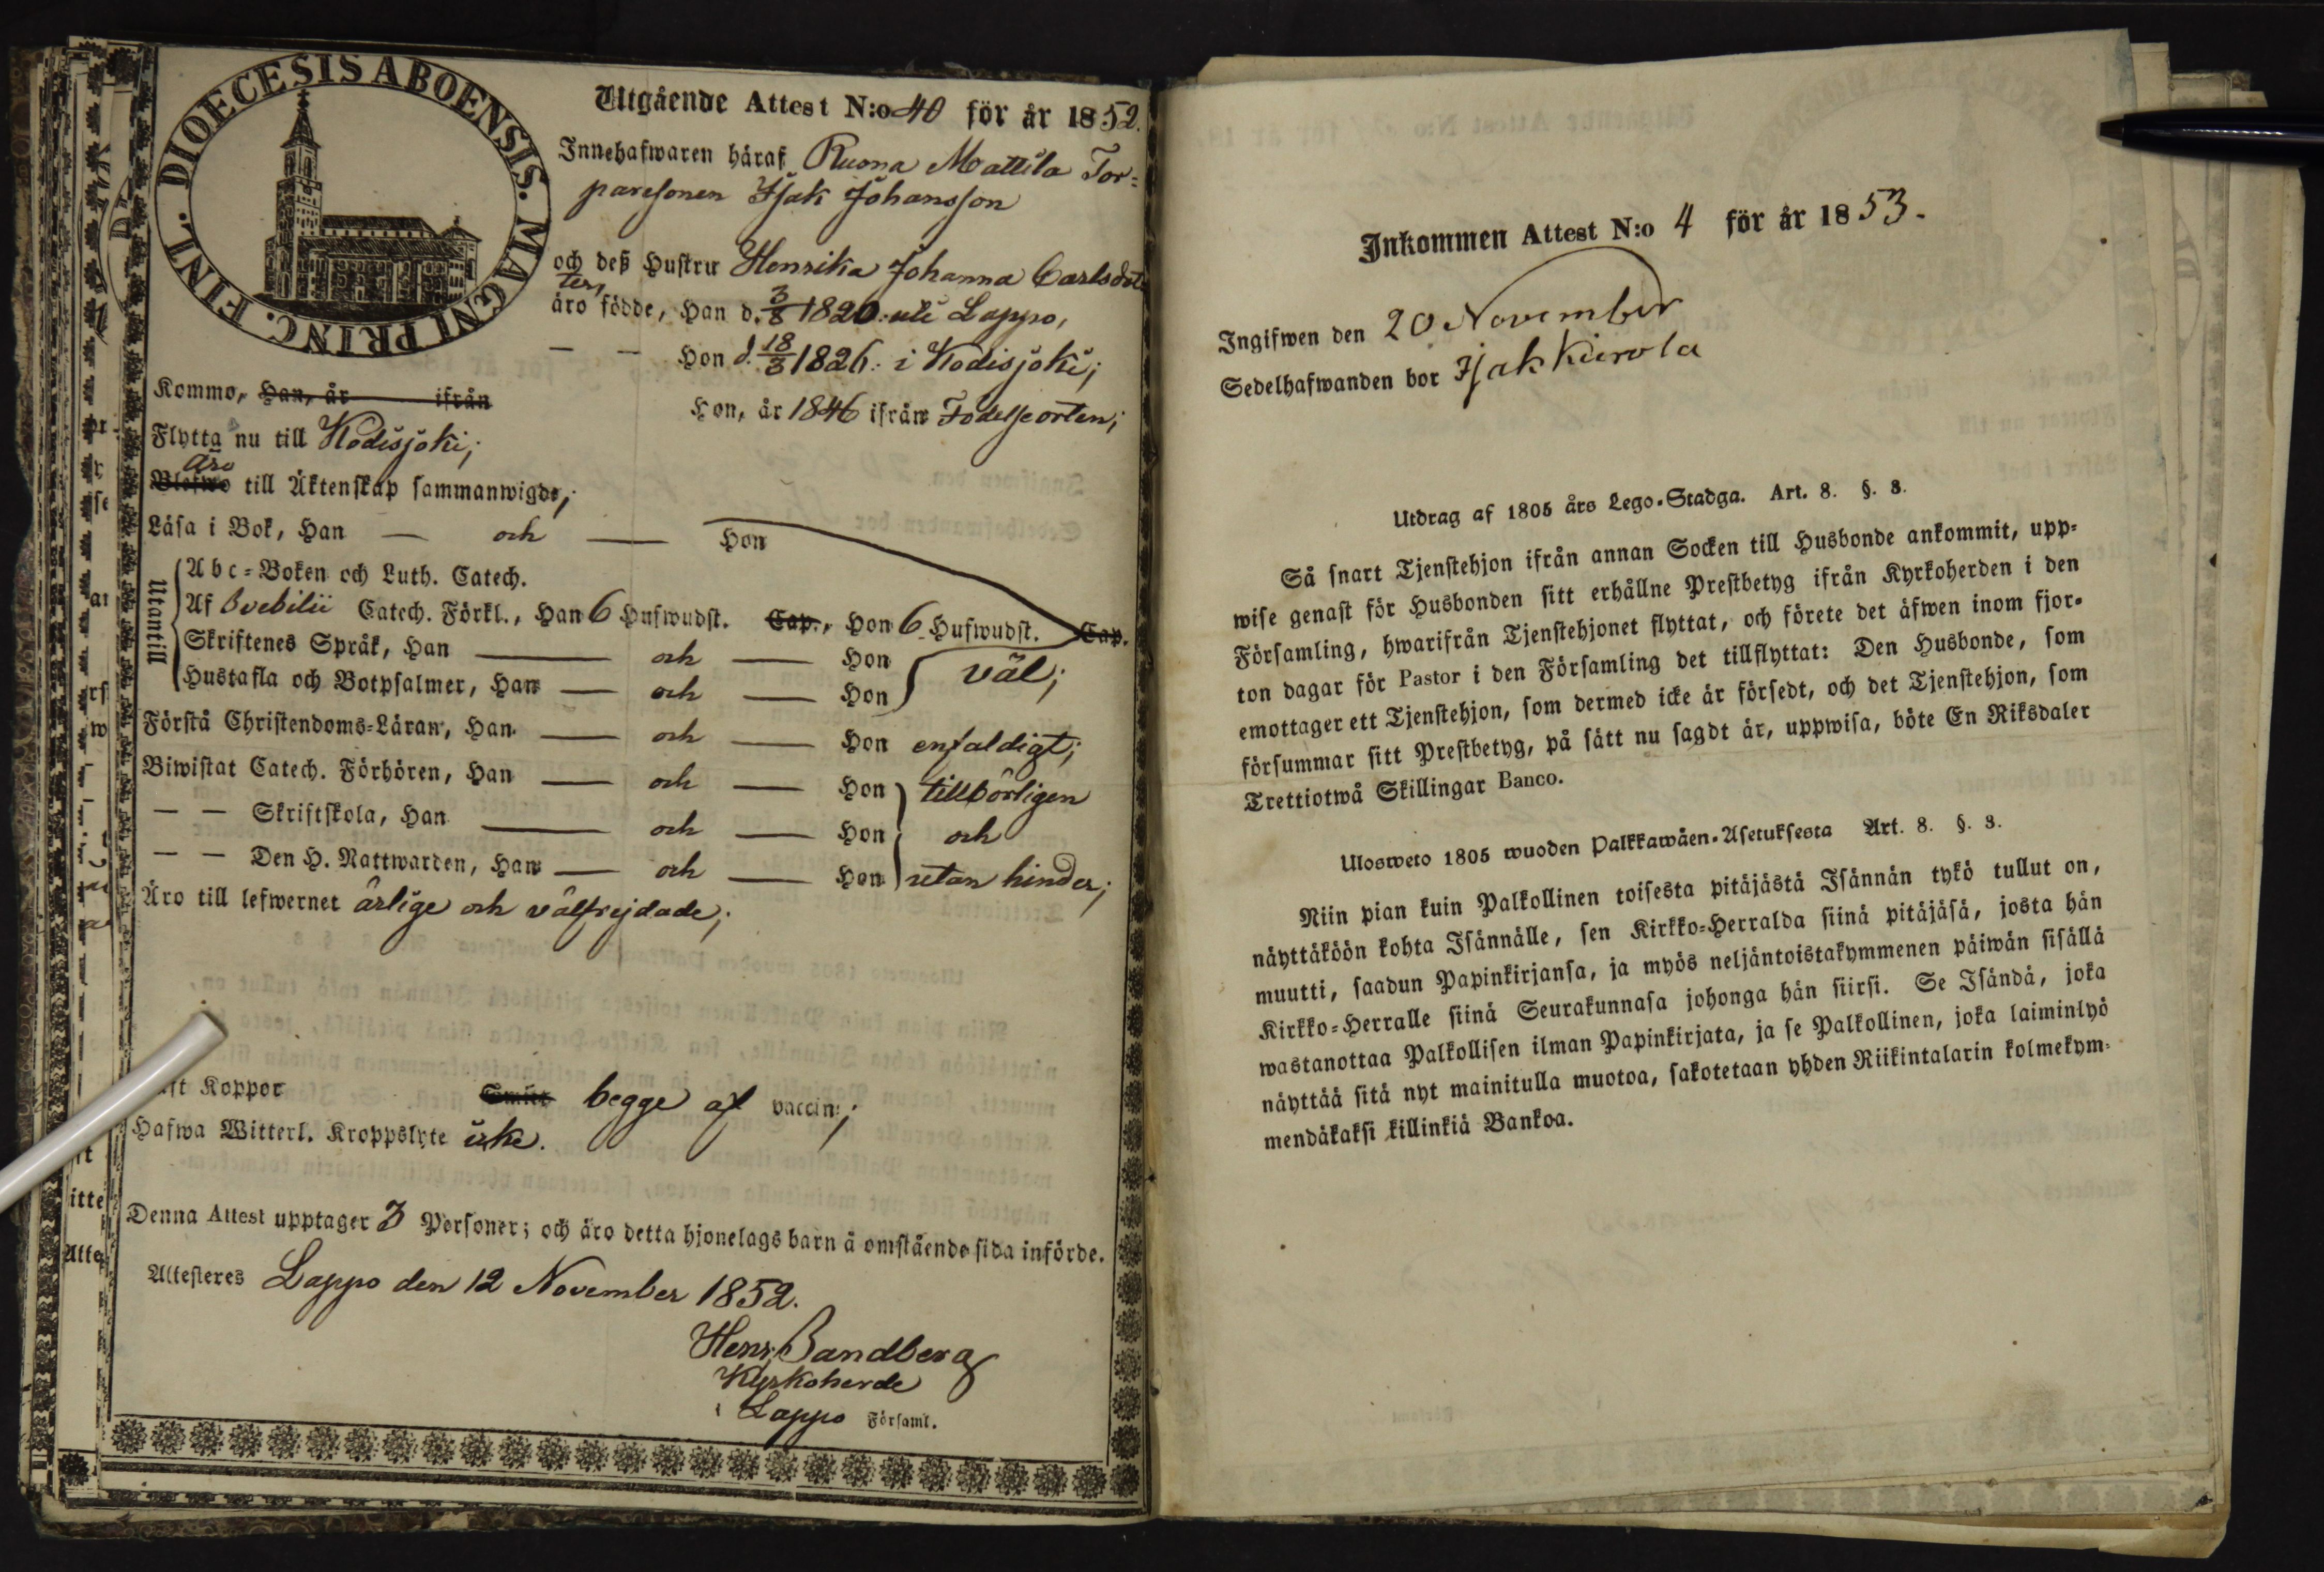 DIOECESIS ABOENSIS. MAGNI PRINC. FINL.
Utgående Attest N:o 40 för år 1852.
Innehafwaren häraf Ruona Mattila Tor=
paresonen Isak Johansson
och deß Hustru Henrika Johanna Carlsdot
ter,
äro födde, Han d. 3/8 1820 uti Lappo,
— — Hon d. 18/3 1826 i Hodisjoki;
Kommo, Han, år ifrån
Hon, år 1846 ifrån Födelseorten;
Flytta nu till Hodisjoki;
äro
Blefwo till Äktenskap sammanwigde;
Läsa i Bok, Han — och — Hon
Utantill
Abc=Boken och Luth. Catech.
Af Svebilii Catech. Förkl., Han 6 Hufwudst. Cap., Hon 6 Hufwudst. Cap.
Skriftenes Språk, Han — och — Hon
väl;
Hustafla och Botpsalmer, Han — och — Hon
Förstå Christendoms=Läran, Han — och — Hon enfaldigt;
Biwistat Catech. Förhören, Han — och — Hon tillbörligen
— — Skriftskola, Han — och — Hon och
— — Den H. Nattwarden, Han — och — Hon utan hinder;
Äro till lefwernet ärlige och välfrejdade;
Koppor begge af vaccin;
Hafwa Witterl. Kroppslyte icke.
Denna Attest upptager 3 Personer; och äro detta hjonelags barn å omstående sida införde.
Attesteres Lappo den 12 November 1852.
Henr. Sandberg
Kyrkoherde
i Lappo Församl.
Inkommen Attest N:o 4 för år 1853.
Ingifwen den 20 November
Sedelhafwanden bor Isak Kivola
Utdrag af 1805 års Lego-Stadga. Art. 8. §. 3.
Så snart Tjenstehjon ifrån annan Socken till Husbonde ankommit, upp=
wise genast för Husbonden sitt erhållne Prestbetyg ifrån Kyrkoherden i den
Församling, hwarifrån Tjenstehjonet flyttat, och förete det äfwen inom fjor=
ton dagar för Pastor i den Församling det tillflyttat: Den Husbonde, som
emottager ett Tjenstehjon, som dermed icke är försedt, och det Tjenstehjon, som
försummar sitt Prestbetyg, på sätt nu sagdt är, uppwisa, böte En Riksdaler
Trettiotwå Skillingar Banco.
Ulosweto 1805 wuoden Palkkawäen-Asetuksesta Art. 8. §. 3.
Niin pian kuin Palkollinen toisesta pitäjästä Isännän tykö tullut on,
näyttäköön kohta Isännälle, sen Kirkko=Herralda siinä pitäjäsä, josta hän
muutti, saadun Papinkirjansa, ja myös neljäntoistakymmenen päiwän sisällä
Kirkko=Herralle siinä Seurakunnasa johonga hän siirsi. Se Isändä, joka
wastanottaa Palkollisen ilman Papinkirjata, ja se Palkollinen, joka laiminlyö
näyttää sitä nyt mainitulla muotoa, sakotetaan yhden Riikintalarin kolmekym=
mendäkaksi killinkiä Bankoa.